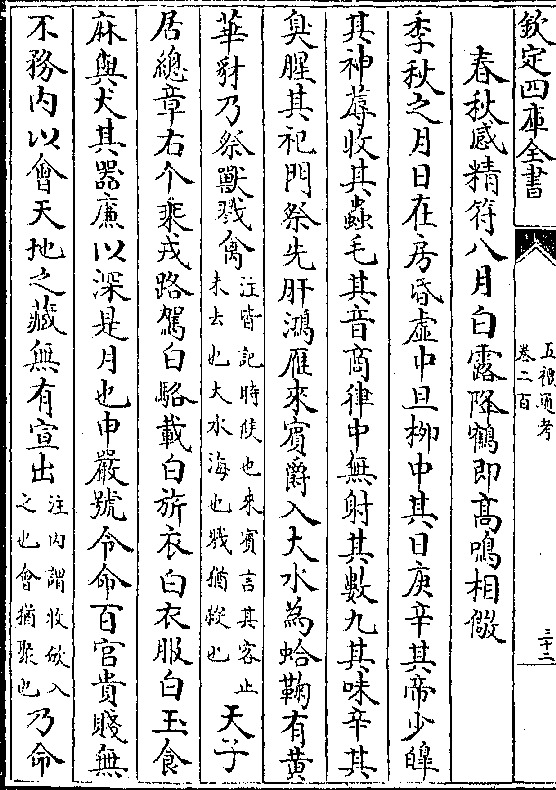 欽定四庫全書
五禮通考
卷二百
三十二
春秋感精符八月白露降鶴即高鳴相儆
季秋之月日在房昏虛中旦柳中其日庚辛其帝少皥
其神蓐收其蟲毛其音商律中無射其數九其味辛其
臭腥其祀門祭先肝鴻雁來賓爵入大水為蛤鞠有黃
華豺乃祭獸戮禽注皆記時候也來賓言其客止
未去也大水海也戮猶殺也天子
居總章右个乘戎路駕白駱載白旂衣白衣服白玉食
麻與犬其器廉以深是月也申嚴號令命百官貴賤無
不務內以會天地之藏無有宣出注內謂收斂入
之也會猶聚也乃命